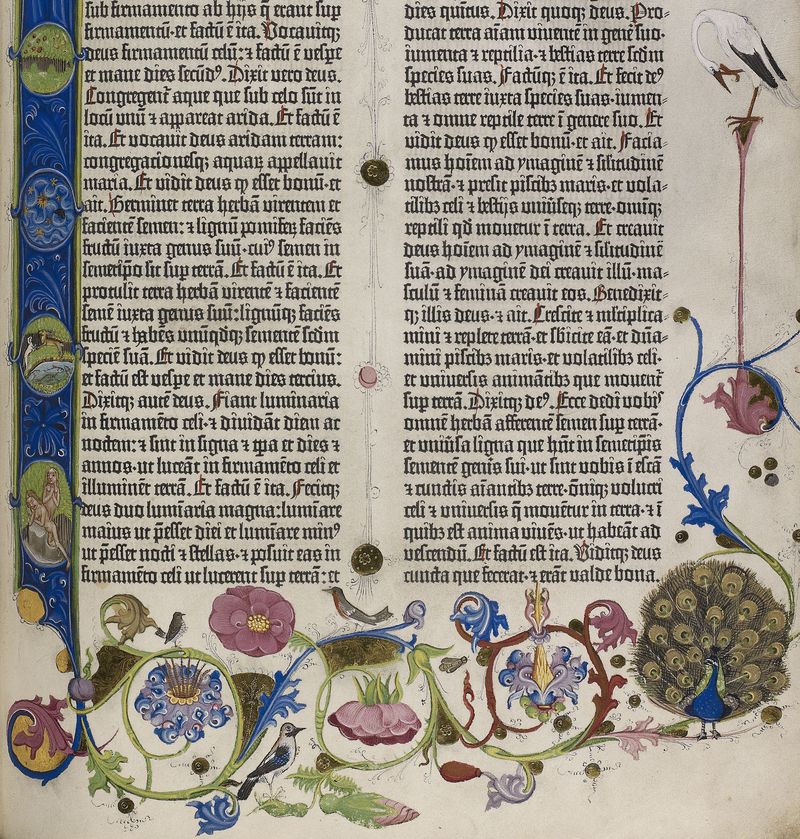 sub firmamento ab hijs q̃ erant sup
firmamentũ: et factũ ẽ ita. Vocauitqꝫ
deus firmamentũ celũ: ⁊ factũ ẽ vespe
et mane dies secũdꝰ. Dixit vero deus.
Congregent᷑ aque que sub celo sũt in
locũ vnũ ⁊ appareat arida. Et factũ ẽ
ita. Et vocauit deus aridam terram:
congregacionesqꝫ aquaꝝ appellauit
maria. Et vidit deus ꝙ esset bonũ · et
ait. Germinet terra herbã virentem et
facientẽ semen: ⁊ lignũ pomifeꝝ faciẽs
fructũ iuxta genus suũ · cuiꝰ semen in
semetip̃o sit sup terrã. Et factũ ẽ ita. Et
protulit terra herbã virentẽ ⁊ facientẽ
semẽ iuxta genus suũ: lignũqꝫ faciẽs
fructũ ⁊ habẽs vnũqdqꝫ sementẽ scdm
speciẽ suã. Et vidit deus ꝙ esset bonũ:
et factũ est vespe et mane dies tercius.
Dixitqꝫ autẽ deus. Fiant luminaria
in firmamẽto celi · ⁊ diuidãt diem ac
noctem: ⁊ sint in signa ⁊ tp̃a et dies ⁊
annos · ut luceãt in firmamẽto celi et
illuminẽt terrã. Et factũ ẽ ita. Fecitqꝫ
deus duo lumĩaria magna: lumĩare
maius ut p̃esset diei et lumĩare minꝰ
ut p̃esset nocti ⁊ stellas · ⁊ posuit eas in
firmamẽto celi ut lucerent sup terrã: et
dies quĩtus. Dixit quoqꝫ deus. Pro-
ducat terra aĩam viventẽ in genẽ suo ·
iumenta ⁊ reptilia · ⁊ bestias terre scdm
species suas. Factũqꝫ ẽ ita. Et fecit deꝰ
bestias terre iuxta species suas · iumen-
ta ⁊ omne reptile terre ĩ genere suo. Et
vidit deus ꝙ esset bonũ · et ait. Facia-
mus hoĩem ad ymaginẽ ⁊ silitudinẽ
nostrã · ⁊ presit piscibꝫ maris · et vola-
tilibꝫ celi ⁊ bestijs vniũseqꝫ terre · omĩqꝫ
reptili qd mouetur ĩ terra. Et creauit
deus hoĩem ad ymaginẽ ⁊ silitudinẽ
suã · ad ymaginẽ dei creauit illũ · ma-
sculũ ⁊ feminã creauit eos. Benedixit-
qꝫ illis deus · ⁊ ait. Crescite ⁊ mĩtiplica-
mini ⁊ replete terrã · et sb̃icite eã · et dñã-
mini piscibꝫ maris · et volatilibꝫ celi ·
et vniuersis animãtibꝫ que mouent᷑
sup terrã. Dixitqꝫ deꝰ. Ecce dedi vobis
omnẽ herbã afferentẽ semen sup terrã ·
et vniũsa ligna que hñt in semetip̃is
sementẽ genis sui · ut sint vobis ĩ escã
⁊ cunctis aĩantibꝫ terre · õniqꝫ volucri
celi ⁊ vniuersis q̃ mouẽtur in terra · ⁊ ĩ
quibꝫ est anima viuẽs · ut habeãt ad
vescendũ. Et factũ est ita. Viditqꝫ deus
cuncta que fecerat · ⁊ erãt valde bona.